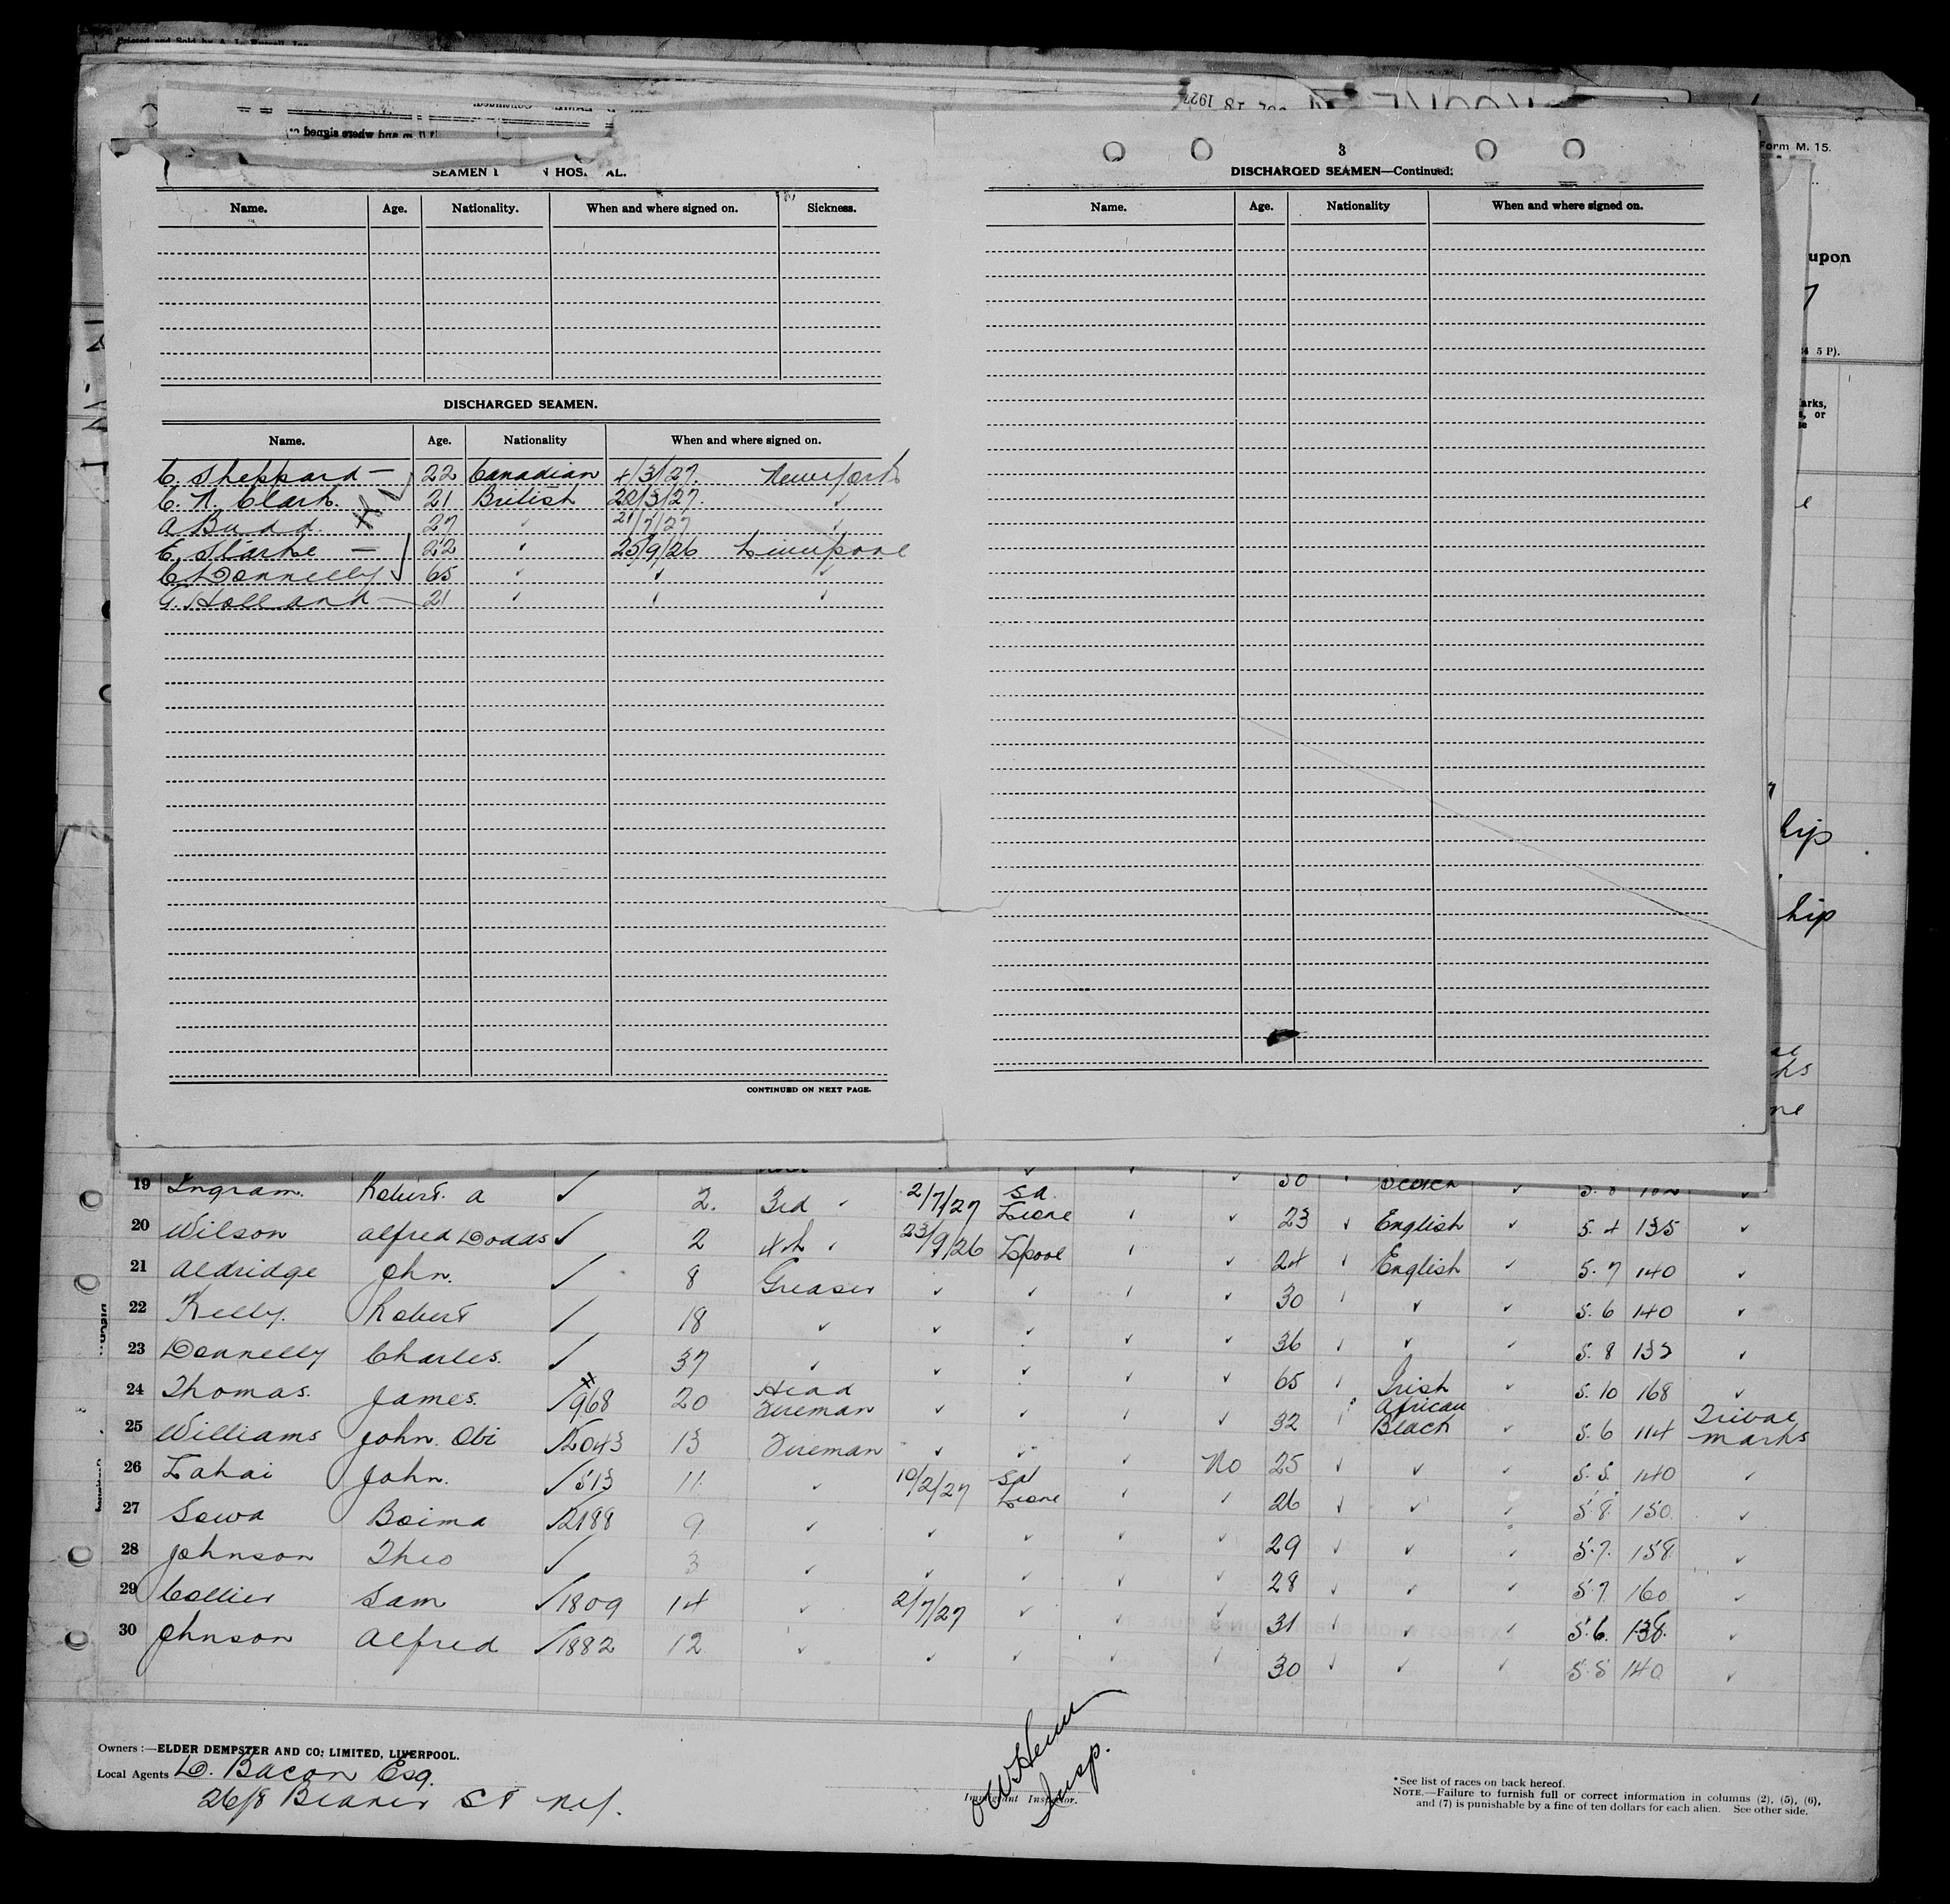 Printed and Sold by A. L. Russell, Inc.
1927
Form M. 15.
upon
5 P).
3
SEAMEN HOSPITAL.
Name. Age. Nationality. When and where signed on. Sickness.
DISCHARGED SEAMEN.
Name. Age. Nationality When and where signed on.
C. Sheppard — 22 Canadian 4/3/27. New York
C. N. Clark. 21 British 22/3/27. ✓
A Budd. 27 ✓ 21/7/27 ✓
E. Starke — 22 ✓ 25/9/26 Liverpool
C. Donnelly 65 ✓ ✓ ✓
G. Holland — 21 ✓ ✓ ✓
CONTINUED ON NEXT PAGE.
DISCHARGED SEAMEN—Continued.
Name. Age. Nationality When and where signed on.
arks,
s, or
hip
hip
19 Ingram. Robert. A ✓ 2. 3rd ✓ 2/7/27 Sa. Leone ✓ ✓ 23 ✓ English ✓ 5. 4 135 ✓
20 Wilson Alfred Dodds ✓ 2 4th ✓ 23/9/26 Lpool ✓ ✓ 24 ✓ English ✓ 5. 7 140 ✓
21 Aldridge John. ✓ 8 Greaser ✓ ✓ ✓ ✓ 30 ✓ ✓ ✓ 5. 6 140 ✓
22 Kelly. Robert ✓ 18 ✓ ✓ ✓ ✓ ✓ 36 ✓ ✓ ✓ 5. 8 135 ✓
23 Donnelly Charles. ✓ 37 ✓ ✓ ✓ ✓ ✓ 65 ✓ Irish ✓ 5. 10 168 ✓
24 Thomas. James. ✓968 20 Head Fireman ✓ ✓ ✓ ✓ 32 ✓ African Black ✓ 5. 6 114 Tribal marks
25 Williams John. Obi ✓2043 13 Fireman ✓ ✓ No 25 ✓ ✓ ✓ 5. 5. 140 ✓
26 Lahai John. ✓513 11 ✓ 10/2/27 Sa Leone ✓ ✓ 26 ✓ ✓ ✓ 5. 8. 150. ✓
27 Sowa Boima ✓2188 9 ✓ ✓ ✓ ✓ ✓ 29 ✓ ✓ ✓ 5. 7. 158 ✓
28 Johnson Theo ✓ 3 ✓ ✓ ✓ ✓ ✓ 28 ✓ ✓ ✓ 5. 7 160 ✓
29 Collier Sam ✓1809 14 ✓ 2/7/27 ✓ ✓ ✓ 31 ✓ ✓ ✓ 5. 6. 138. ✓
30 Johnson Alfred ✓1882 12 ✓ ✓ ✓ ✓ ✓ 30 ✓ ✓ ✓ 5. 5 140 ✓
Owners :—ELDER DEMPSTER AND CO; LIMITED, LIVERPOOL.
Local Agents D. Bacon Esq.
26/8 Beaver St N.Y.
Insp.
Immigrant Inspector.
*See list of races on back hereof.
NOTE.—Failure to furnish full or correct information in columns (2), (5), (6),
and (7) is punishable by a fine of ten dollars for each alien. See other side.